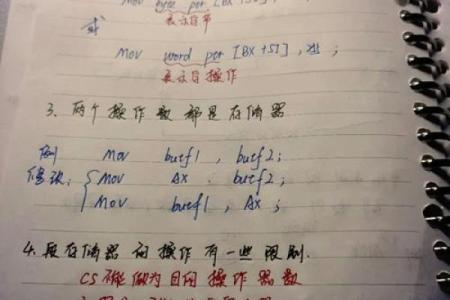 Mov byte ptr [BX+5]
表示字节
或
Mov word ptr [BX+5], ;
表示字操作
3. 两个操作数都是存储器
例 Mov buff1, buff2;
修改: Mov AX, buff2;
Mov buff1, AX;
4. 段存储器的操作有一些限制.
CS 不能做为目的操作器数